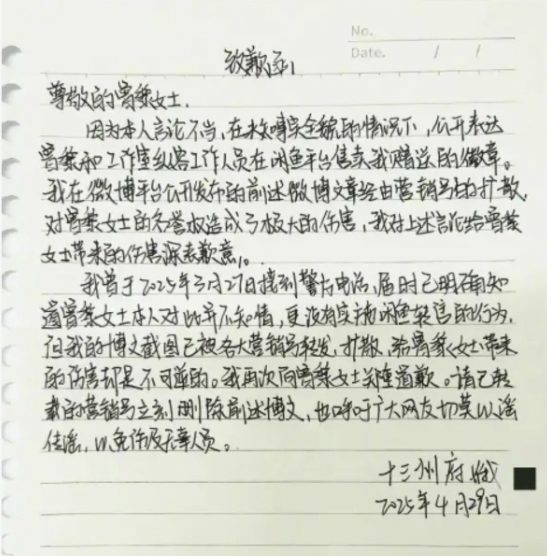 No.
Date. / /
致歉函
尊敬的曾黎女士,
因为本人言论不当,在未知晓全貌的情况下,公开表达
曾黎和工作室级客工作人员在闲鱼平台售卖我赠送的徽章。
我在微博平台公开发布的前述微博文章经由营销号的扩散,
对曾黎女士的名誉权造成了极大的伤害,我对上述言论给曾黎
女士带来的伤害深表歉意。
我曾于2025年3月27日接到警方电话,届时已明确知
道曾黎女士本人对此并不知情,更没有实施闲鱼转售的行为,
但我的博文截图已被各大营销号转发、扩散,给曾黎女士带来
的伤害却是不可逆的。我再次向曾黎女士郑重道歉。请已转
载的营销号立刻删除前述博文,也呼吁广大网友切莫以谣
传谣,以免涉及无辜人员。
十三州府
2025年4月29日